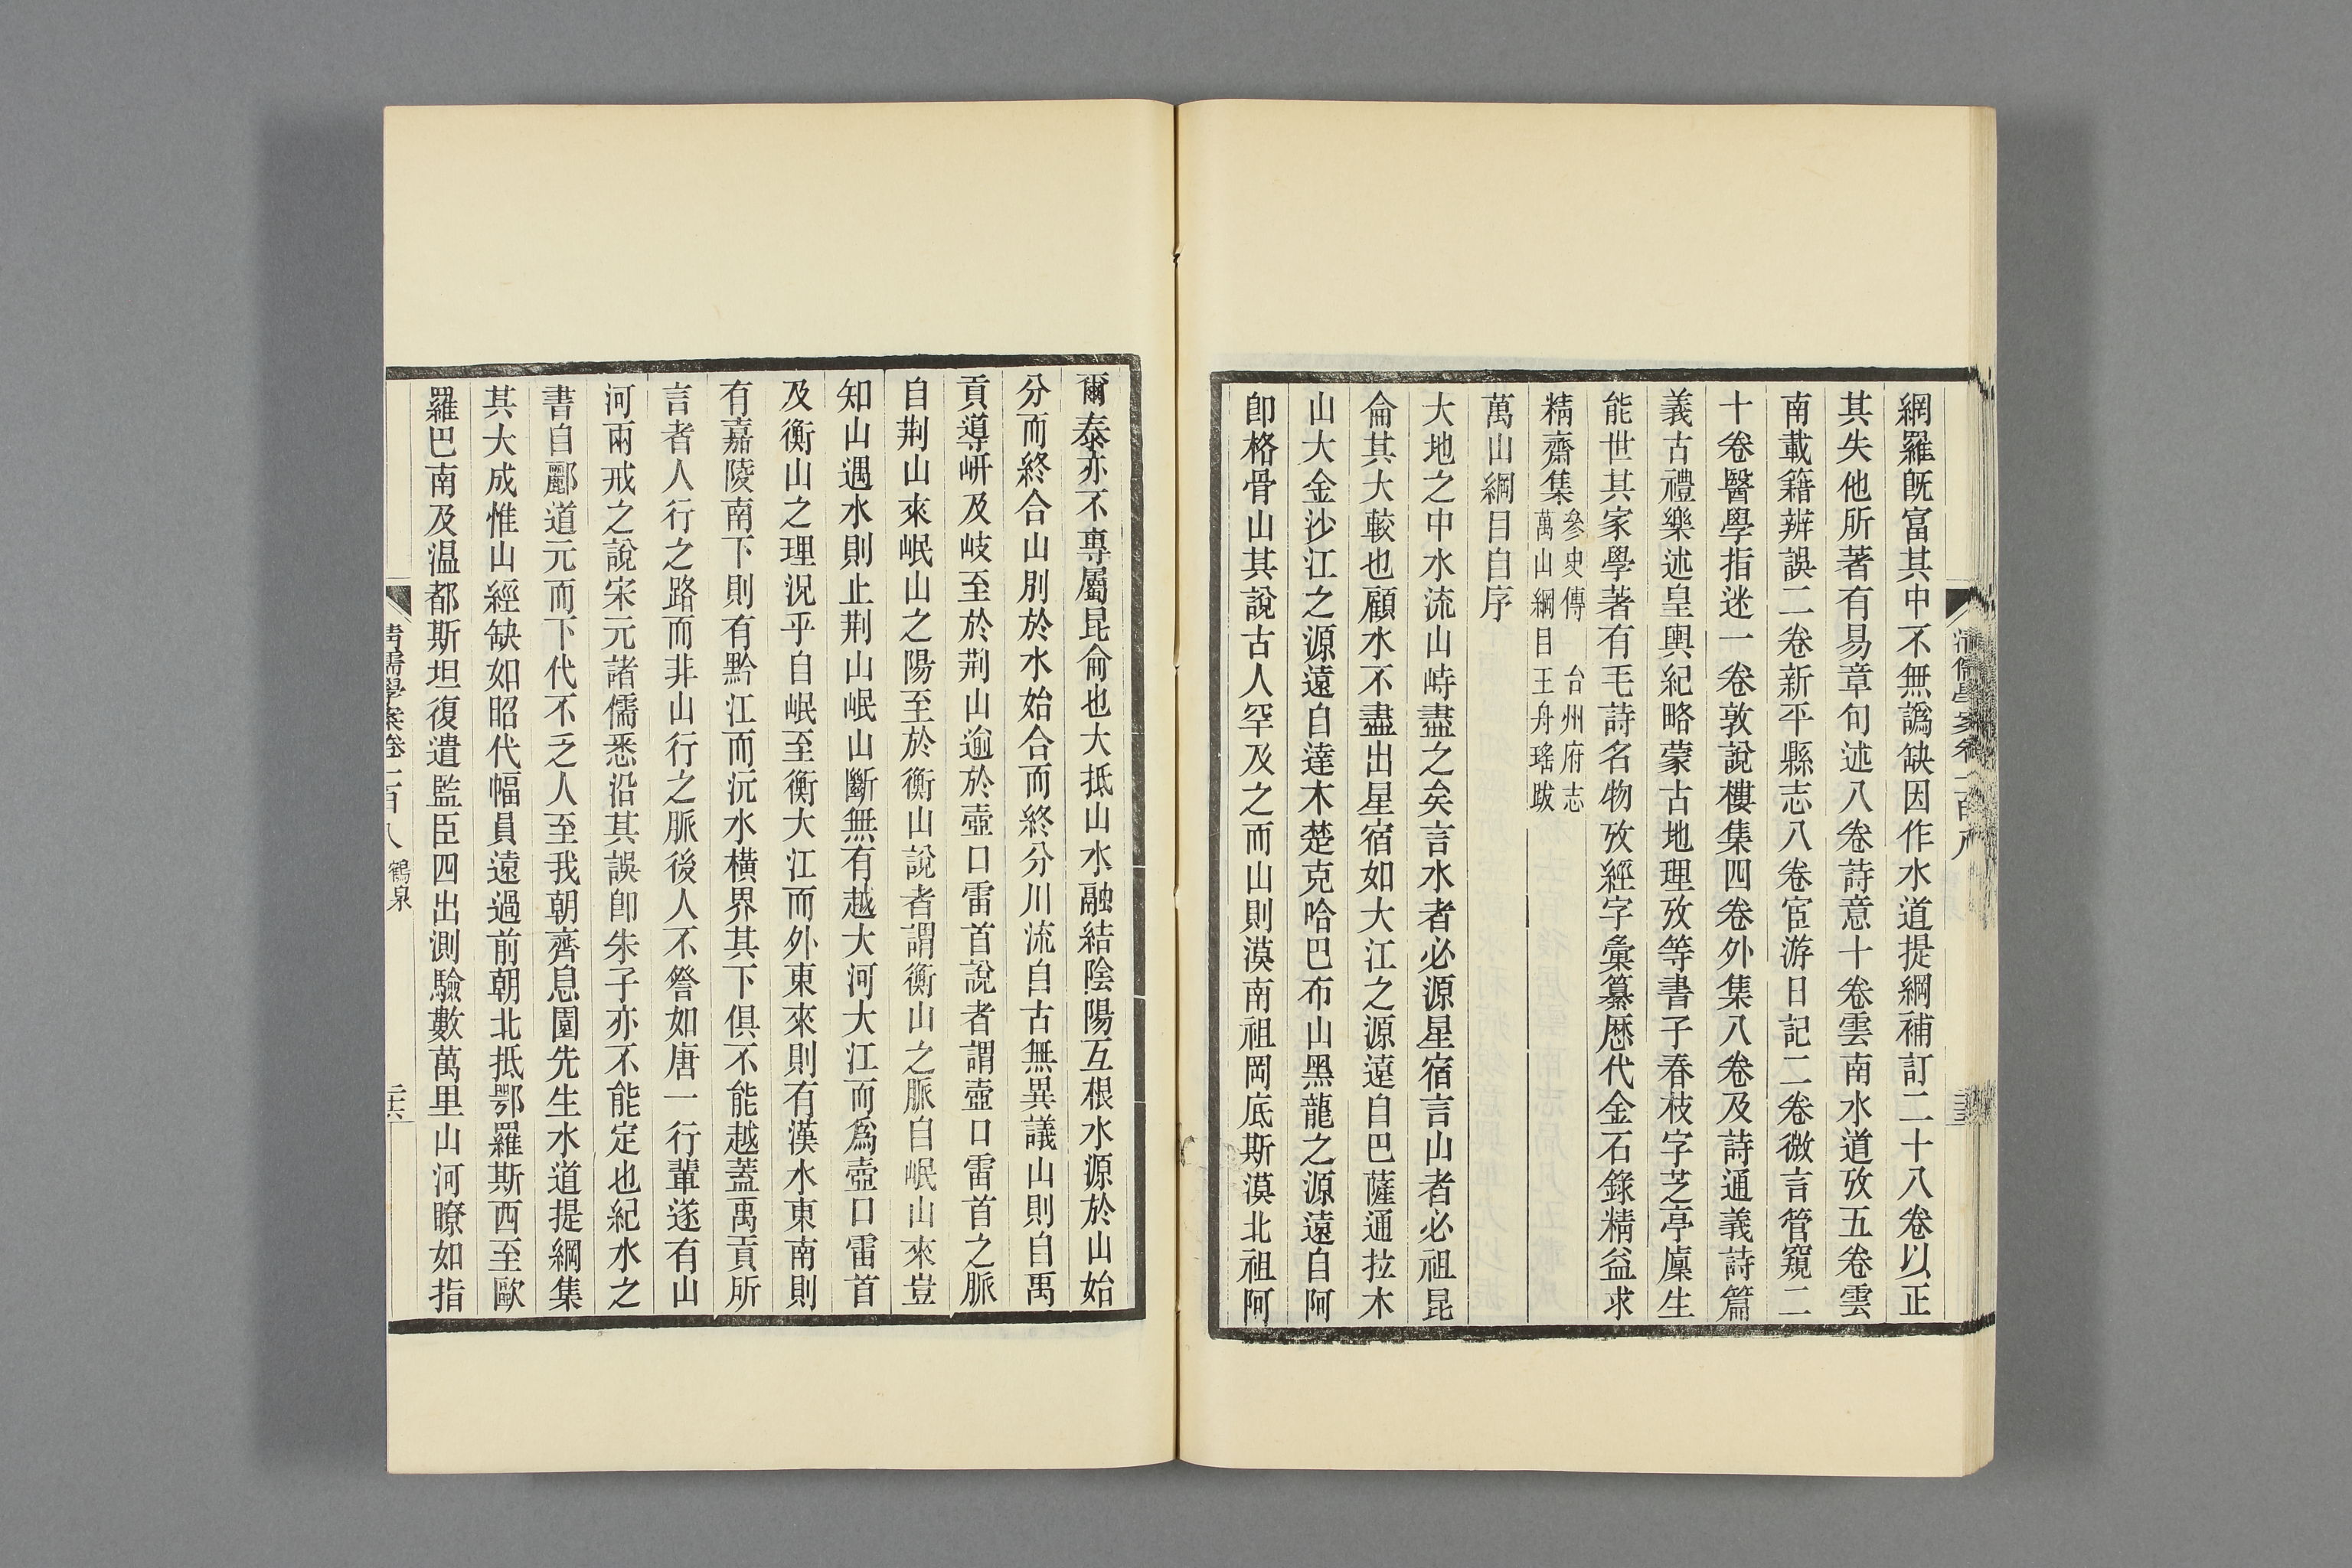 網羅旣富其中不無譌缺因作水道提綱補訂二十八卷以正
其失他所著有易章句述八卷詩意十卷雲南水道攷五卷雲
南載籍辨誤二卷新平縣志八卷宦游日記二卷微言管窺二
十卷醫學指迷一卷敦說樓集四卷外集八卷及詩通義詩篇
義古禮樂述皇輿紀略蒙古地理攷等書子春枝字芝亭廩生
能世其家學著有毛詩名物攷經字彙纂歷代金石錄精益求
精齋集
參史傳 台州府志
萬山綱目 王舟瑤跋
萬山綱目自序
大地之中水流山峙盡之矣言水者必源星宿言山者必祖昆
侖其大較也顧水不盡出星宿如大江之源遠自巴薩通拉木
山大金沙江之源遠自達木楚克哈巴布山黑龍之源遠自阿
卽格骨山其說古人罕及之而山則漠南祖岡底斯漠北祖阿
爾泰亦不專屬昆侖也大抵山水融結陰陽互根水源於山始
分而終合山別於水始合而終分川流自古無異議山則自禹
貢導岍及岐至於荆山逾於壺口雷首說者謂壺口雷首之脈
自荆山來岷山之陽至於衡山說者謂衡山之脈自岷山來豈
知山遇水則止荆山岷山斷無有越大河大江而爲壺口雷首
及衡山之理況乎自岷至衡大江而外東來則有漢水東南則
有嘉陵南下則有黔江而沅水橫界其下俱不能越蓋禹貢所
言者人行之路而非山行之脈後人不詧如唐一行輩遂有山
河兩戒之說宋元諸儒悉沿其誤卽朱子亦不能定也紀水之
書自酈道元而下代不乏人至我朝齊息園先生水道提綱集
其大成惟山經缺如昭代幅員遠過前朝北抵鄂羅斯西至歐
羅巴南及温都斯坦復遣監臣四出測驗數萬里山河瞭如指
清儒學案卷二百八 鶴泉
二十六